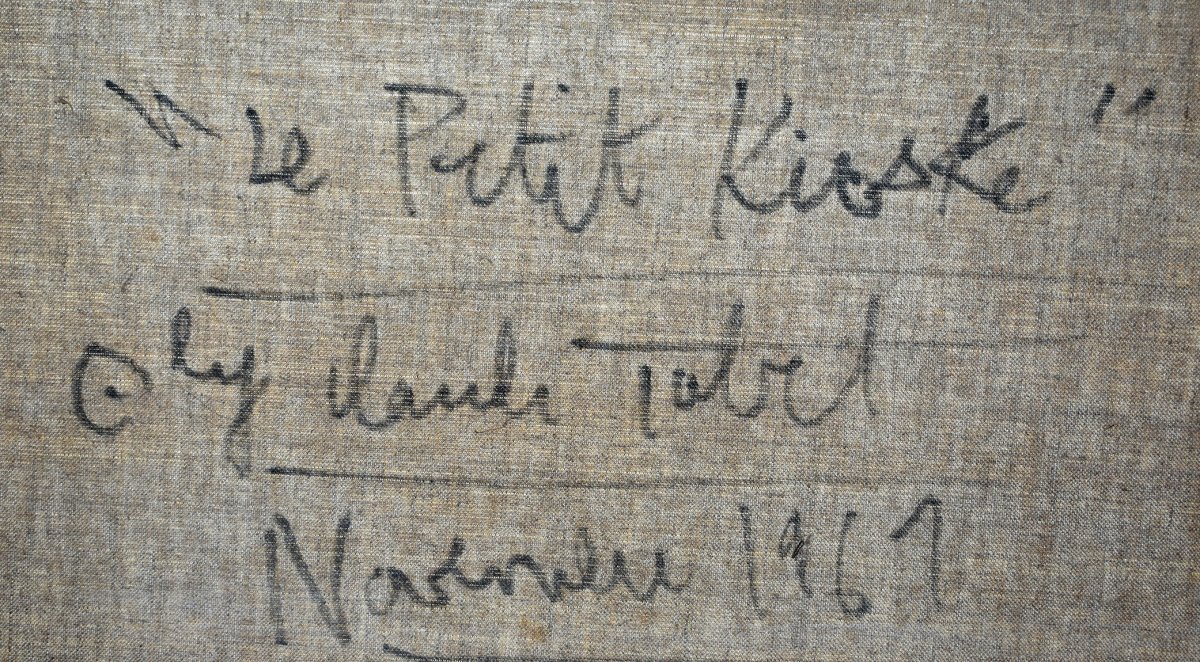 "Le Petit Kioske"
© by Claude Tabet
Novembre 1961